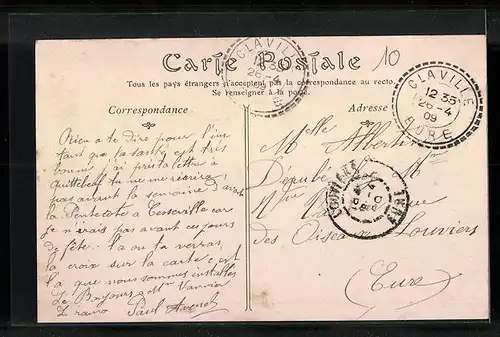 Carte Postale
10
Tous les pays étrangers n'acceptent pas la correspondance au recto.
Se renseigner à la poste
Correspondance
Adresse
CLAVILLE
12 35
26-4
09
EURE
CLAVILLE
12 35
26-4
09
EURE
Rien a te dire pour l'ins
tant que la santé est très
bonne ai pris ta lettre a
tu me récrire
pas avant la semaine d'avant
la Pentecote a Tesseville car
je n'irais pas avant ces jours
de fête. la ou tu verras
la croix sur la carte c'est
la que nous sommes installés
Le Bonjour a Mr Vannier
Paul
Melle Albertine
Député
Mme
Nme
des Oiseaux
Louviers
(Eure)
LOUVIERS
EURE